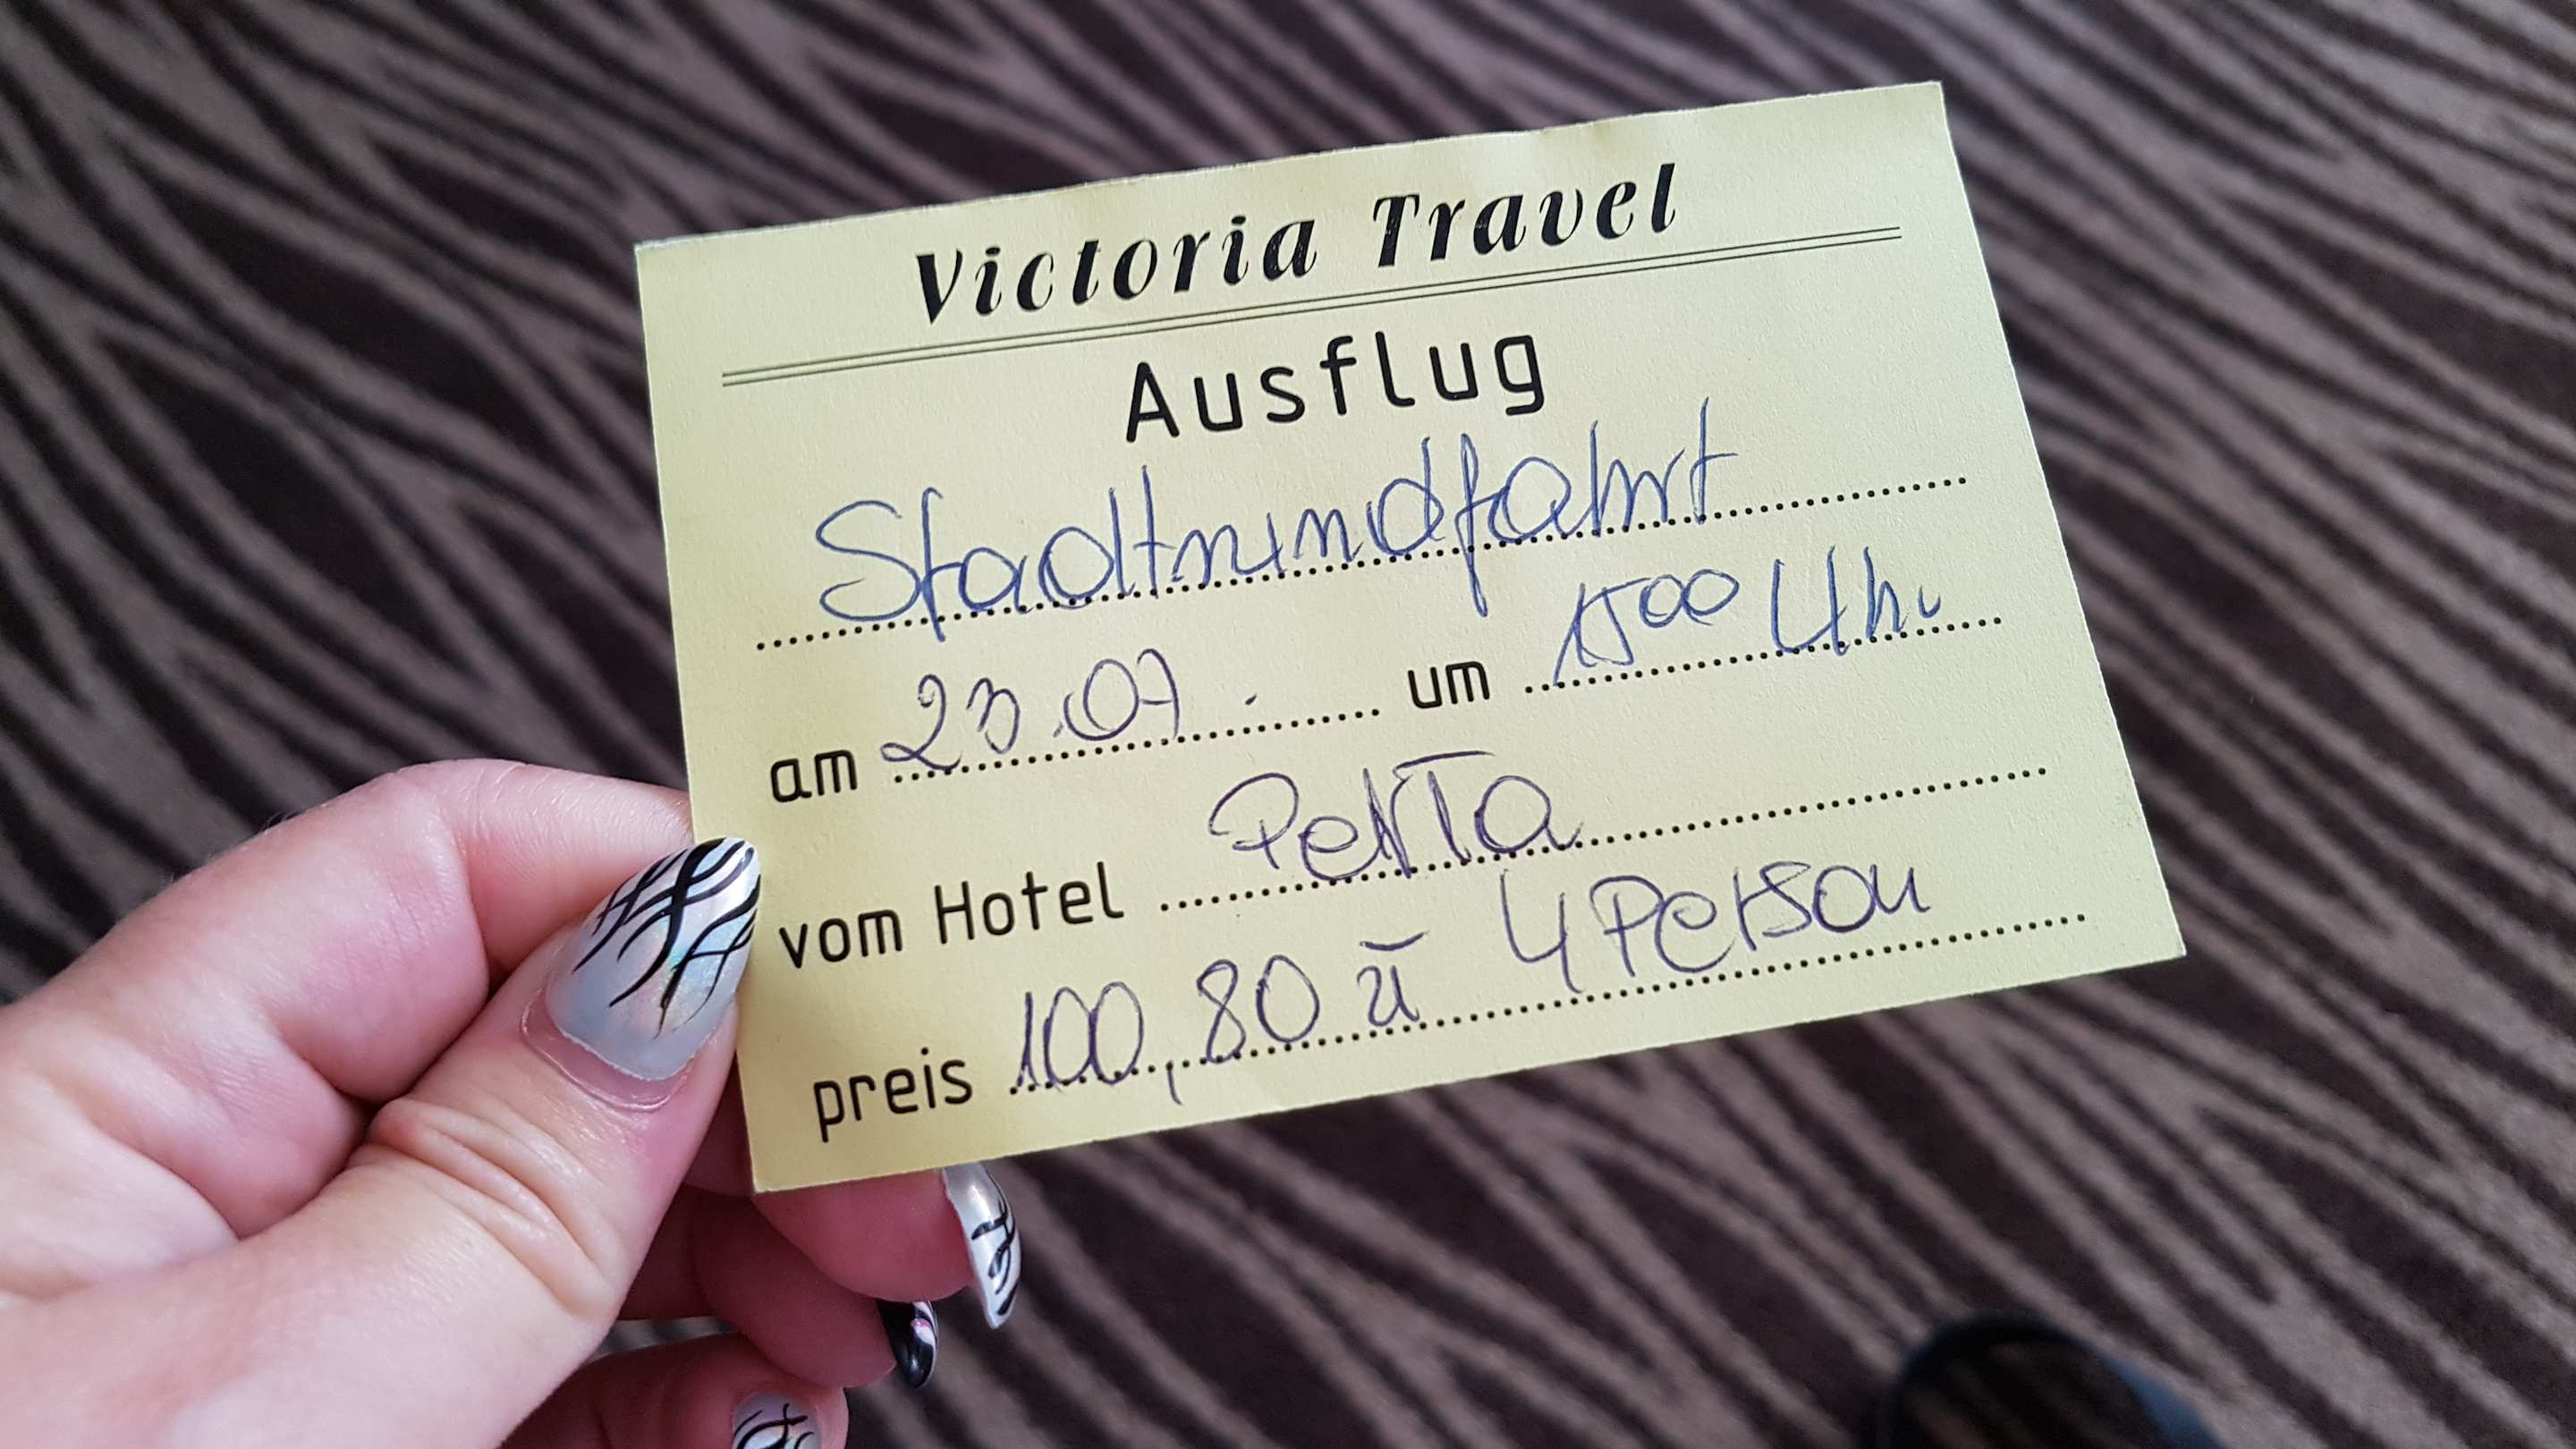 Victoria Travel
Ausflug
Stadtrundfahrt
am 23.07. um 15⁰⁰ Uhr
vom Hotel PeNTa
preis 100,80 ü 4 Person